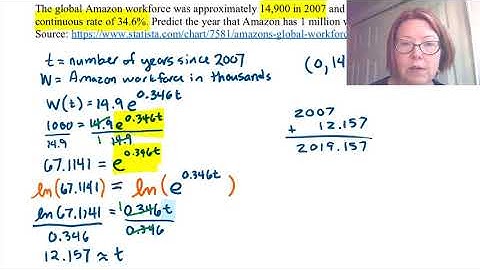 The global Amazon workforce was approximately 14,900 in 2007 and
continuous rate of 34.6%. Predict the year that Amazon has 1 million w
Source: https://www.statista.com/chart/7581/amazons-global-workforc
t = number of years since 2007
W = Amazon workforce in thousands
(0, 14
W(t) = 14.9e^0.346t
1000/14.9 = 14.9e^0.346t/14.9
1
67.1141 = e^0.346t
ln(67.1141) = ln(e^0.346t)
ln 67.1141/0.346 = 0.346t/0.346
1
12.157 ≈ t
2007
+ 12.157
2019.157